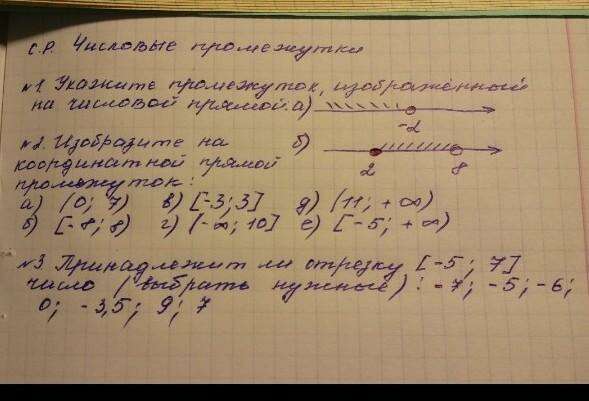 С.Р. Числовые промежутки
№1 Укажите промежуток, изображённый
на числовой прямой: а)
-2
№2. Изобразите на б)
координатной прямой
2 8
промежуток:
а) (0; 7) в) [-3; 3] д) (11; +∞)
б) [-8; 8) г) (-∞; 10] е) [-5; +∞)
№3 Принадлежит ли отрезку [-5; 7]
число (выбрать нужные): -7; -5; -6;
0; -3,5; 9; 7